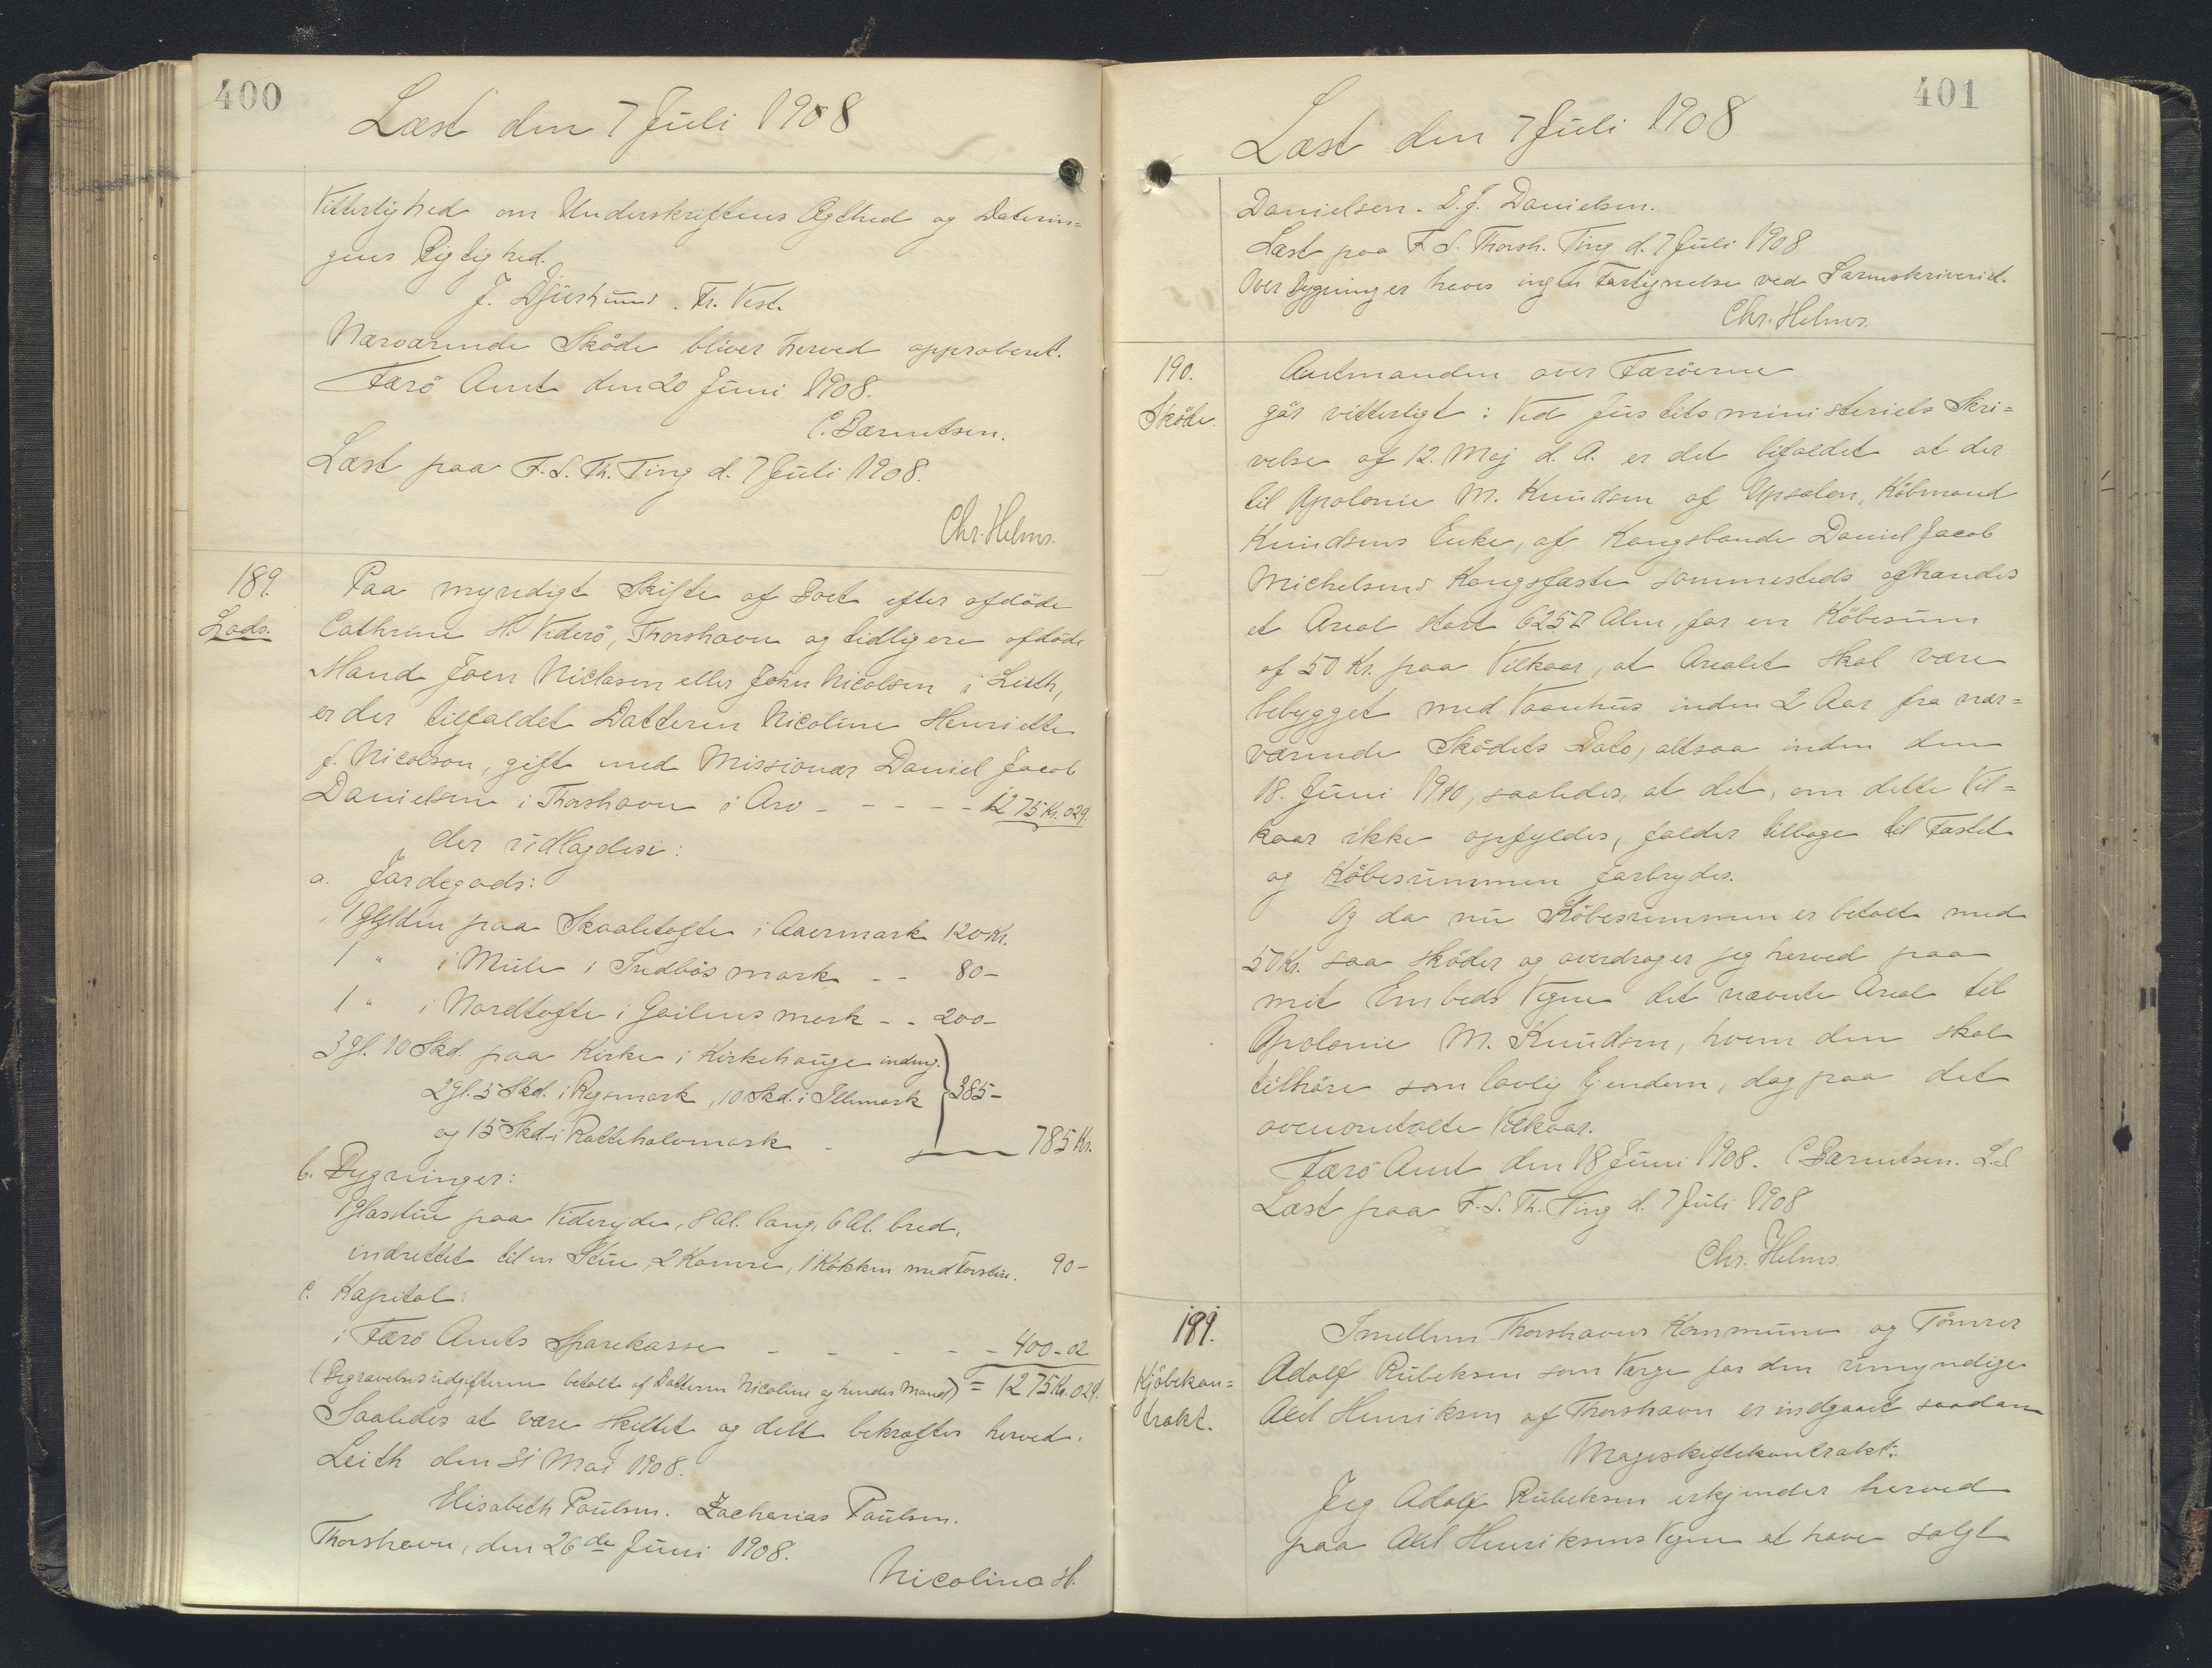 400
Læst den 7 Juli 1908
Vitterlighed om Underskriftens Ægthed og Daterin=
gens Rigtighed.
J. Djurhuus. Fr. Vest.
Nærværende Sköde bliver herved approberet.
Færö Amt den 20 Juni 1908.
C. Bærentsen.
Læst paa F. S. Th. Ting d. 7 Juli 1908.
Chr. Helms.
189.
Lods.
Paa myndigt Skifte af Boet efter afdöde
Cathrine H. Viderö, Thorshavn og tidligere afdöde
Mand Joen Niclasen eller John Nicolsen i Leith,
er der tilfaldet Datteren Nicoline Henriette
f. Nicolson, gift med Missionær Daniel Jacob
Danielsen i Thorshavn i Arv - - - - - 1275 Kr. 02 Ø.
der udlagdes:
a. Jordegods:
1 Gylden paa Skaaletofte i Aaermark 120 Kr.
1 " i Mule i Tredbös mark - - 80 -
1 " i Nordtofte i Goilens mark - - 200 -
3 Gl. 10 Skd. paa Kirke i Kirkehauge indmg.
2 Gl. 5 Skd. i Rygsmark, 10 Skd. i Illumark } 385 -
og 15 Skd. i Rottehalvmark - 785 Kr.
b. Bygninger:
1 Glasstue paa Videryde, 8 Al. lang, 6 Al. bred,
indrettet til en Stue, 2 Kamre, 1 Kökken med Forstue. 90 -
c. Kapital:
i Færö Amts Sparekasse - - - - - 400 - 02
(Begravelsesudgifterne betalt af Datteren Nicoline og hendes Mand) = 1275 Kr. 02 Ø.
Saaledes at være skiftet og delt bekræftes herved.
Leith den 31 Mai 1908.
Elisabeth Paulsen. Zacharias Paulsen.
Thorshavn, den 26de Juni 1908.
Nicolina H.
401
Læst den 7 Juli 1908
Danielsen. D. J. Danielsen.
Læst paa F. S. Thorsh. Ting d. 7 Juli 1908
Over Bygninger haves ingen Fortegnelse ved Sorenskriveriet.
Chr. Helms.
190.
Sköde.
Amtmanden over Færöerne
gör vitterligt: Ved Justitsministeriets Skri=
velse af 12. Maj d. A. er det bifaldet at der
til Apolonie M. Knudsen af Upsalen, Köbmand
Knudsens Enke, af Kongsbonde Daniel Jacob
Michelsens Kongsfæste sammesteds afhændes
et Areal stort 625 □ Alen, for en Köbesum
af 50 Kr. paa Vilkaar, at Arealet skal være
bebygget med Vaanhus inden 2 Aar fra nær=
værende Skødets Dato, altsaa inden den
18. Juni 1910, saaledes, at det, om dette Vil=
kaar ikke opfyldes, falder tilbage til Fæstet
og Köbesummen forbrydes.
Og da nu Köbesummen er betalt med
50 Kr. saa sköder og overdrager jeg herved paa
mit Embeds Vegne det nævnte Areal til
Apolonie M. Knudsen, hvem den skal
tilhöre som lovlig Ejendom, dog paa det
ovenomtalte Vilkaar.
Færö Amt den 18 Juni 1908. C. Bærentsen. L. S.
Læst paa F. S. Th. Ting d. 7 Juli 1908
Chr. Helms.
191.
Kjöbekon=
trakt.
Imellem Thorshavns Kommune og Tömrer
Adolf Rubeksen som Værge for den umyndige
Axel Henriksen af Thorshavn er indgaaet saadan
Mageskiftekontrakt:
Jeg Adolf Rubeksen erkjender herved
paa Axel Henriksens Vegne at have solgt